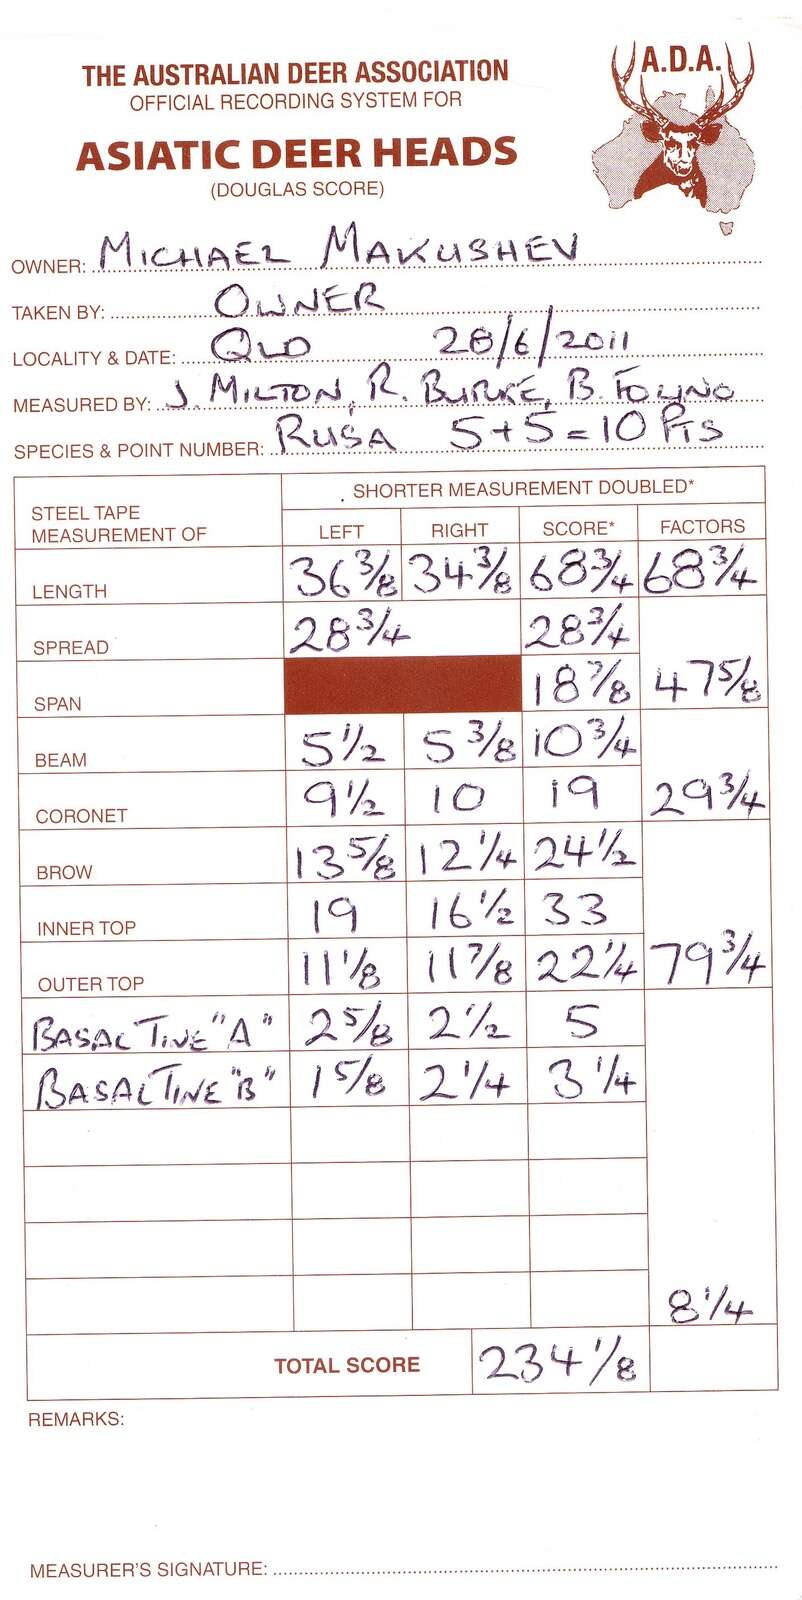 THE AUSTRALIAN DEER ASSOCIATION
OFFICIAL RECORDING SYSTEM FOR
ASIATIC DEER HEADS
(DOUGLAS SCORE)
A.D.A.
OWNER: MICHAEL MAKUSHEV
TAKEN BY: OWNER
LOCALITY & DATE: QLD 28/6/2011
MEASURED BY: J. MILTON, R. BURKE, B.
SPECIES & POINT NUMBER: RUSA 5+5=10 PTS
STEEL TAPE MEASUREMENT OF
SHORTER MEASUREMENT DOUBLED*
LEFT RIGHT SCORE* FACTORS
LENGTH 36 3/8 34 3/8 68 3/4 68 3/4
SPREAD 28 3/4 28 3/4
SPAN 18 7/8 47 5/8
BEAM 5 1/2 5 3/8 10 3/4
CORONET 9 1/2 10 19 29 3/4
BROW 13 5/8 12 1/4 24 1/2
INNER TOP 19 16 1/2 33
OUTER TOP 11 1/8 11 7/8 22 1/4 79 3/4
BASAL TINE "A" 2 5/8 2 1/2 5
BASAL TINE "B" 1 5/8 2 1/4 3 1/4
8 1/4
TOTAL SCORE 234 1/8
REMARKS:
MEASURER'S SIGNATURE: